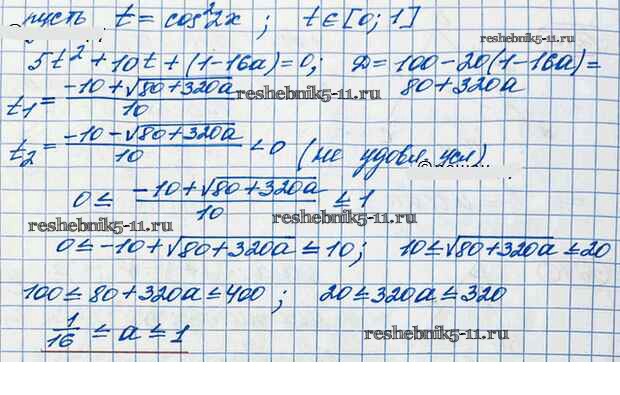 пусть t = cos²2x ; t ∈ [0; 1]
5t² + 10t + (1-16a) = 0; D = 100 - 20(1-16a) =
80 + 320a
t₁ = (-10 + √80+320a)/10
reshebnik5-11.ru
reshebnik5-11.ru
t₂ = (-10 - √80+320a)/10 < 0 (не удовл. усл)
0 ≤ (-10 + √80+320a)/10 ≤ 1
reshebnik5-11.ru
reshebnik5-11.ru
0 ≤ -10 + √80+320a ≤ 10; 10 ≤ √80+320a ≤ 20
100 ≤ 80 + 320a ≤ 400 ; 20 ≤ 320a ≤ 320
1/16 ≤ a ≤ 1
reshebnik5-11.ru